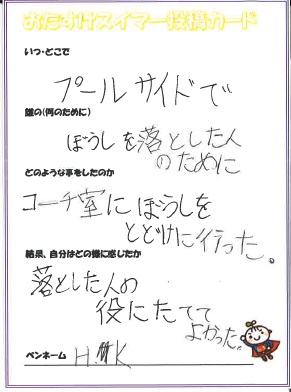 おたすけスイマー投稿カード
いつ・どこで
プールサイドで
誰の(何のために)
ぼうしを落とした人
のために
どのような事をしたのか
コーチ室にぼうしを
とどけに行った。
結果、自分はどの様に感じたか
落とした人の
役にたてて
よかった。
ペンネーム H.K